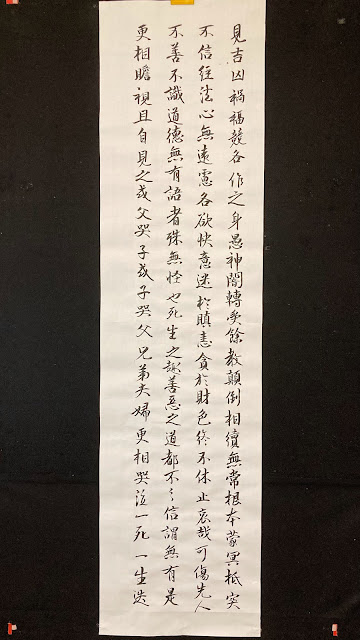 見吉凶禍福競各作之身愚神闇轉受餘教顛倒相續無常根本蒙冥抵突
不信経法心無遠慮各欲快意迷於瞋恚貪於財色終不休止哀哉可傷先人
不善不識道德無有語者殊無怪也死生之趣善惡之道都不之信謂無有是
更相瞻視且自見之或父哭子或子哭父兄弟夫婦更相哭泣一死一生迭